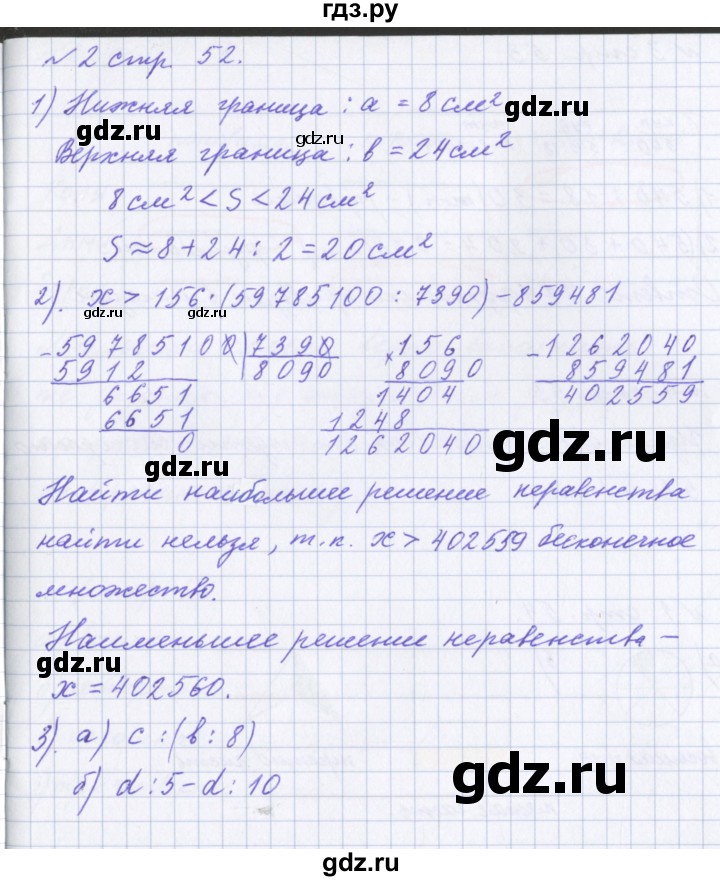 гдз.ру
№ 2 стр. 52.
1) Нижняя граница : a = 8 см²
gdz.ru
gdz.ru
gdz.ru
Верхняя граница : b = 24 см²
8 см² < S < 24 см²
gdz.ru
S ≈ 8 + 24 : 2 = 20 см²
2). x > 156 · (59785100 : 7390) − 859481
gdz.ru
gdz.ru
59785100 | 7390
5912 | 8090
6651
6651
0
× 156
8090
1404
1248
1262040
− 1262040
859481
402559
gdz.ru
gdz.ru
Найти наибольшее решение неравенства
найти нельзя, т.к. x > 402559 бесконечное
множество.
gdz.ru
gdz.ru
Наименьшее решение неравенства –
gdz.ru
x = 402560.
3). а) c : (b : 8)
б) d : 5 − d : 10
gdz.ru
gdz.ru
gdz.ru